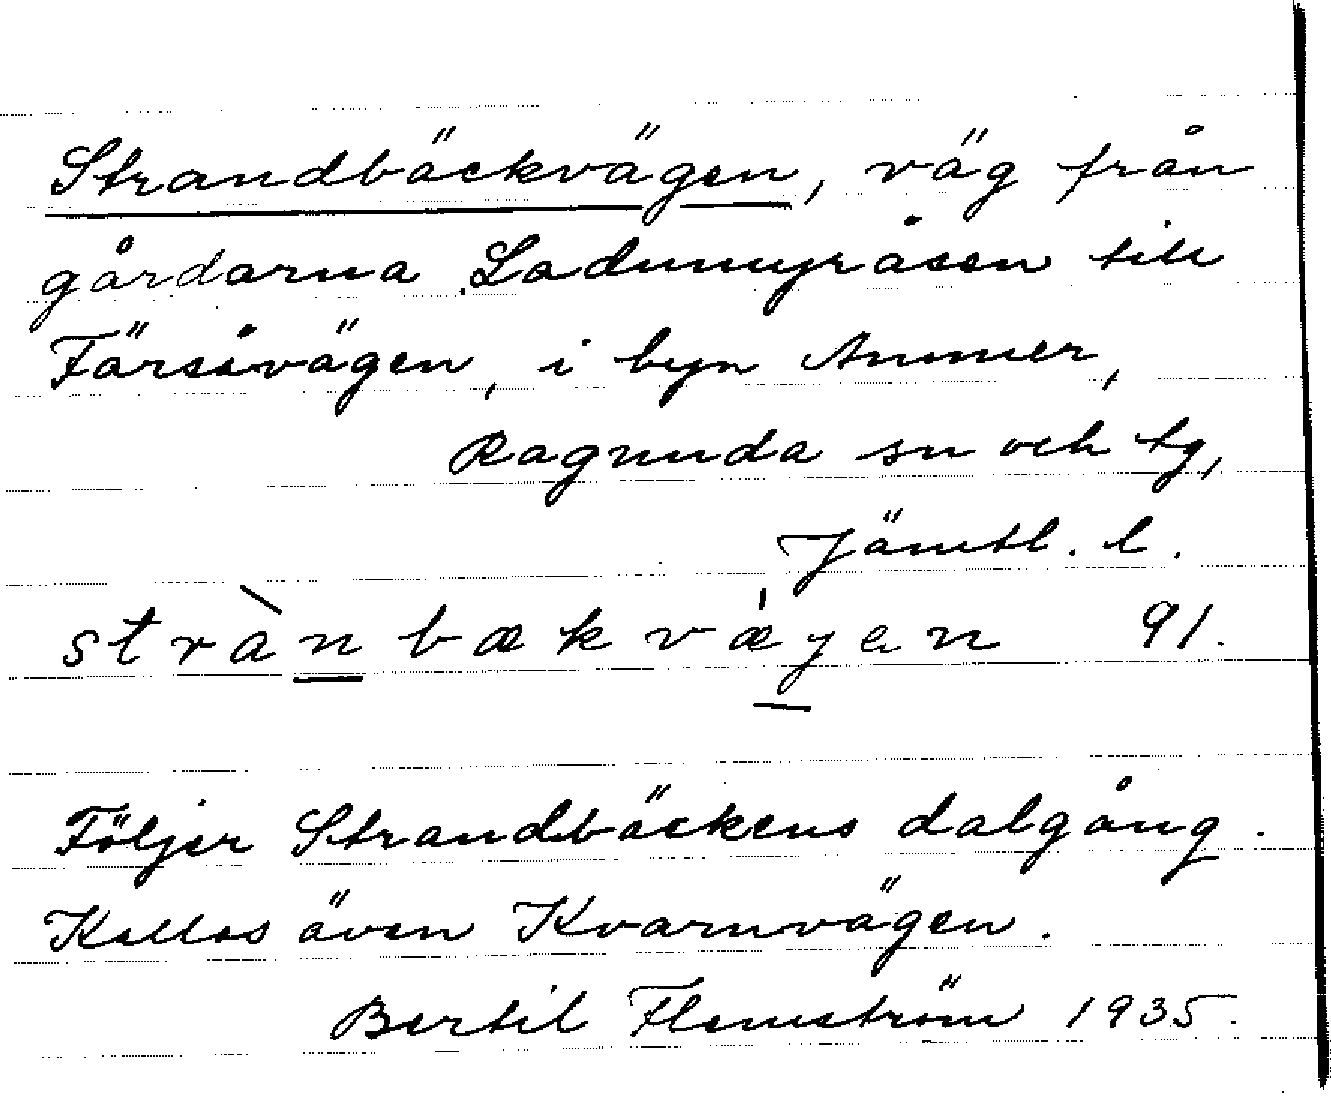 Strandbäckvägen, väg från
gårdarna Ladumyråsen till
Färsåvägen, i byn Ammer,
Ragunda sn och tg,
Jämtl. l.
strànbækvæ̍gen 91.
Följer Strandbäckens dalgång.
Kallas även Kvarnvägen.
Bertil Flemström 1935.